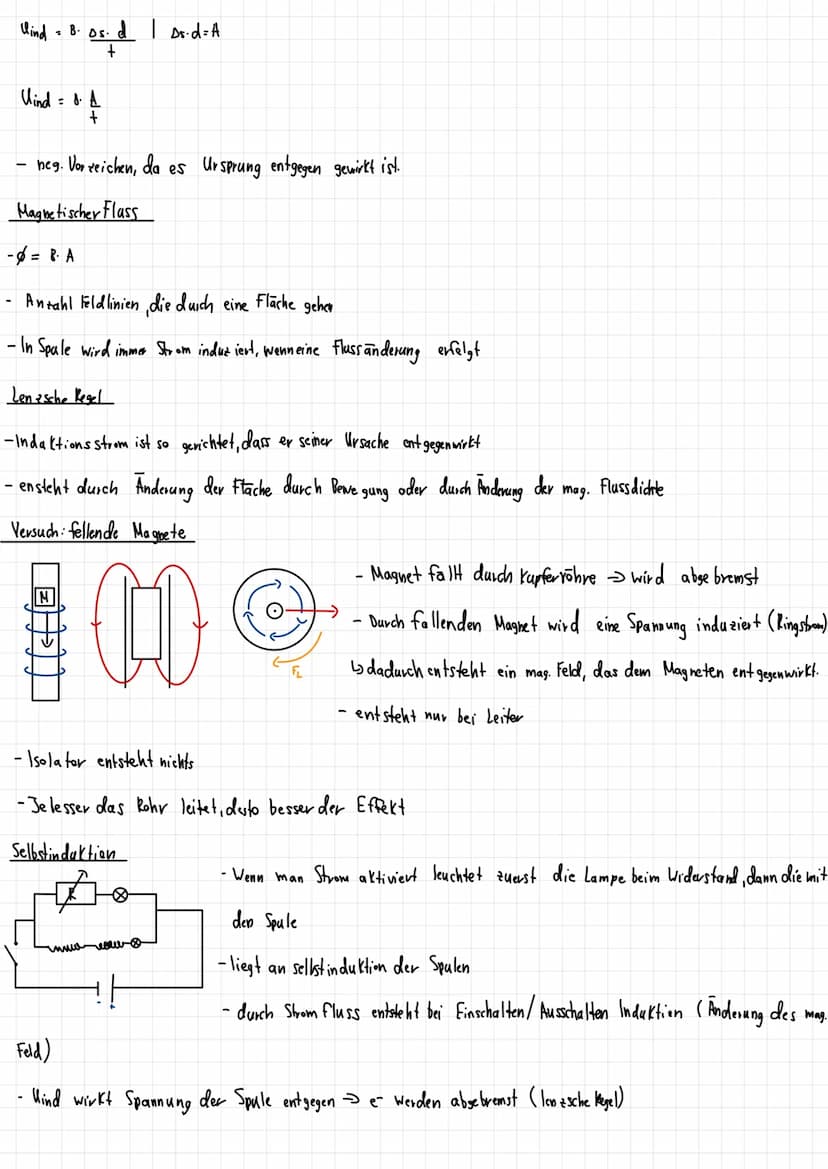 Uind = B · Δs · d / t | Δs · d = A
Uind = B · A / t
- neg. Vorzeichen, da es Ursprung entgegen gewirkt ist.
Magnetischer Fluss
- ϕ = B · A
- Anzahl Feldlinien, die durch eine Fläche gehen
- In Spule wird immer Strom induziert, wenn eine Flussänderung erfolgt
Lenzsche Regel
- Induktionsstrom ist so gerichtet, dass er seiner Ursache entgegenwirkt
- ensteht durch Änderung der Fläche durch Bewegung oder durch Änderung der mag. Flussdichte
Versuch: fallende Magnete
- Magnet fällt durch Kupferröhre → wird abgebremst
N
- Durch fallenden Magnet wird eine Spannung induziert (Ringstrom)
FL
↳ dadurch entsteht ein mag. Feld, das dem Magneten entgegenwirkt.
- entsteht nur bei Leiter
- Isolator entsteht nichts
- Je lesser das Rohr leitet, desto besser der Effekt
Selbstinduktion
- Wenn man Strom aktiviert leuchtet zuerst die Lampe beim Widerstand, dann die mit
R
den Spule
- liegt an selbstinduktion der Spulen
- durch Stromfluss entsteht bei Einschalten/Ausschalten Induktion (Änderung des mag.
Feld)
- Uind wirkt Spannung der Spule entgegen → e⁻ werden abgebremst (lenzsche Regel)